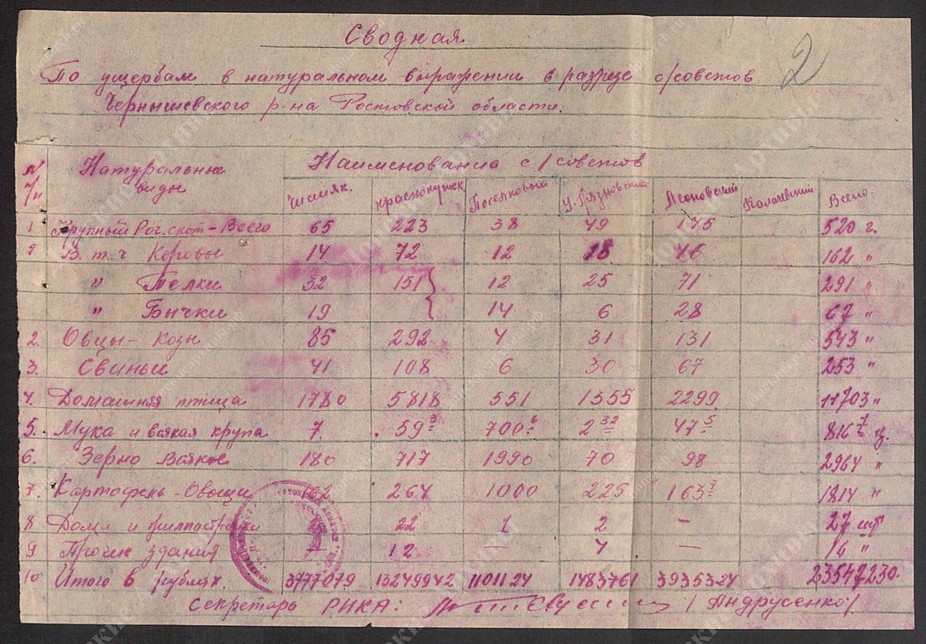 2
Сводная
По ущербам в натуральном выражении в разрезе с/советов
Чернышевского р-на Ростовской области.
№ п/п Натуральные виды Наименование с/советов
Чистяк. Краснокутск Поселковый Леоновский Калачевский Всего.
1 Крупный Рог. скот - Всего 65 223 38 49 175 520 г.
В. т. ч Коровы 14 72 12 18 46 162 "
" Телки 32 151 12 25 71 291 "
" Бычки 19 14 6 28 67 "
2. Овцы - Козы 85 292 4 31 131 543 "
3. Свиньи 41 108 6 30 67 253 "
4. Домашняя птица 1780 5818 551 1555 2299 11703 "
5. Мука и всякая крупа 7. 59 3 700 6 2 32 47 5 816 7 ц.
6. Зерно Всякое 180 717 1990 70 98 2964 "
7. Картофель - Овощи 162 264 1000 225 163 7 1814 "
8 Дома и 22 1 2 — 27 шт
9 Прочие здания 12 — 4 — 16 "
10 Итого в рублях. 3777079 13249942 1101124 1483761 3935324 23547230.
Секретарь РИКА: /Андрусенко/